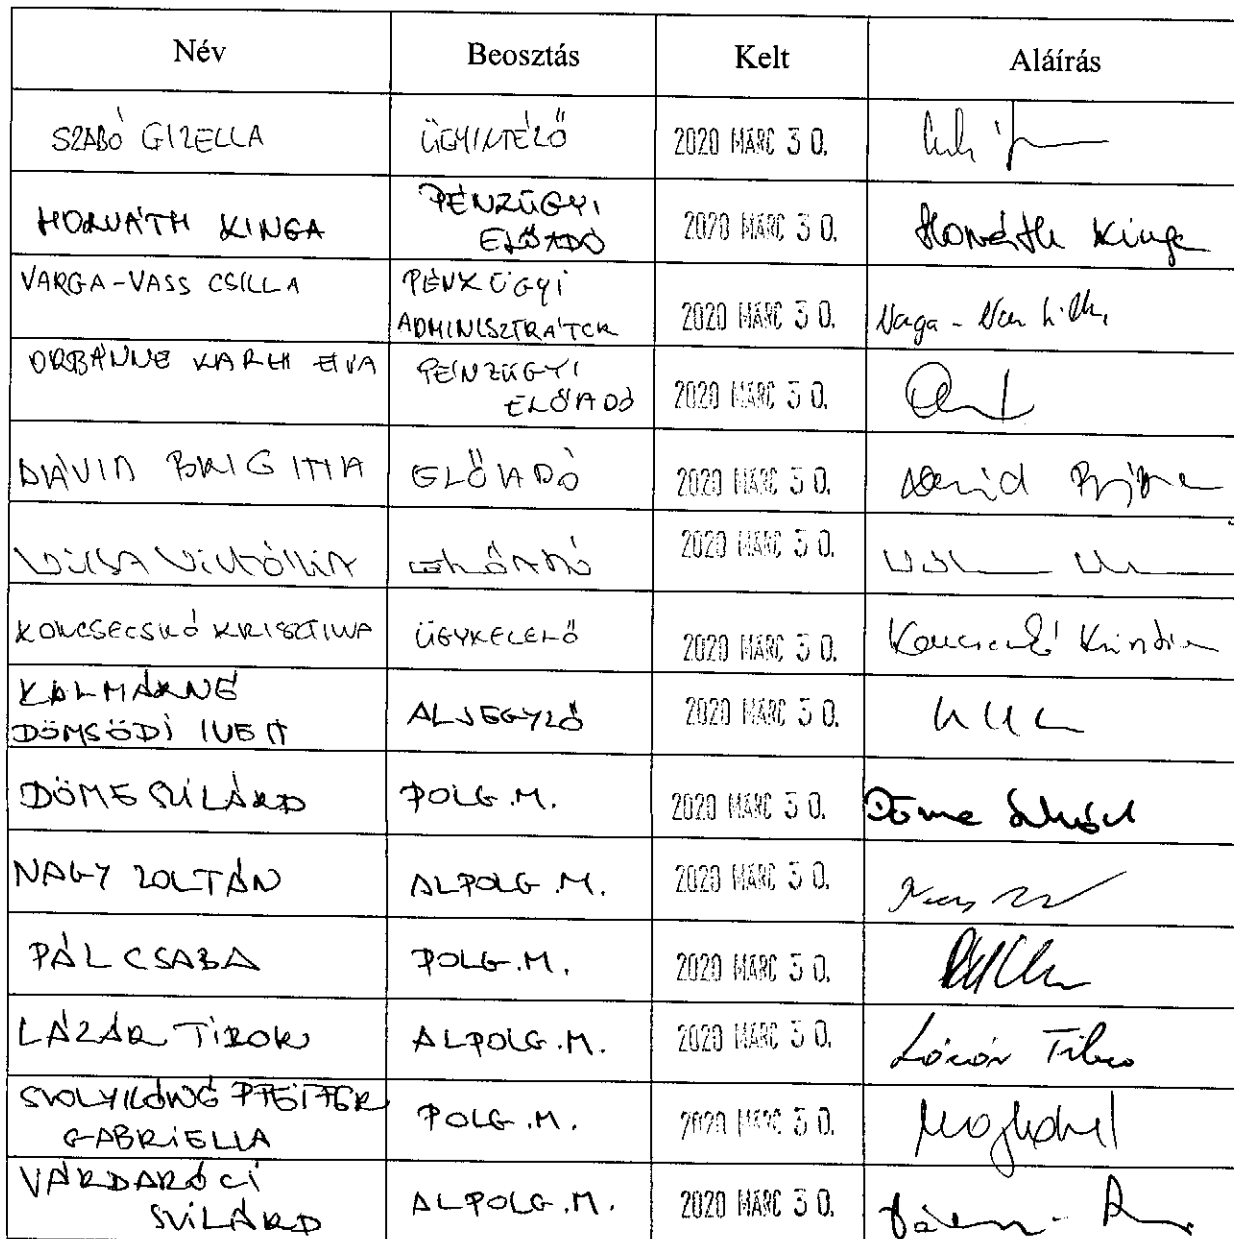 Név Beosztás Kelt Aláírás
SZABÓ GIZELLA ÜGYINTÉZŐ 2020 MÁRC 30.
HORVÁTH KINGA PÉNZÜGYI ELŐADÓ 2020 MÁRC 30. Horváth Kinga
VARGA-VASS CSILLA PÉNZÜGYI ADMINISZTRÁTOR 2020 MÁRC 30.
ORBÁNNÉ KARHI ÉVA PÉNZÜGYI ELŐADÓ 2020 MÁRC 30.
DÁVID BRIGITTA ELŐADÓ 2020 MÁRC 30. Dávid
VIKTÓRIA ELŐADÓ 2020 MÁRC 30.
KONCSECSKÓ KRISZTINA ÜGYKEZELŐ 2020 MÁRC 30. Koncsecskó Krisztina
KALMÁRNÉ
DÖMSÖDI IVETT ALJEGYZŐ 2020 MÁRC 30.
DÖME SZILÁRD POLG.M. 2020 MÁRC 30. Döme Szilárd
NAGY ZOLTÁN ALPOLG.M. 2020 MÁRC 30.
PÁL CSABA POLG.M. 2020 MÁRC 30.
LÁZÁR TIBOR ALPOLG.M. 2020 MÁRC 30. Lázár Tibor
PFEIFFER
GABRIELLA POLG.M. 2020 MÁRC 30.
VÁRDARÓCI
SZILÁRD ALPOLG.M. 2020 MÁRC 30.